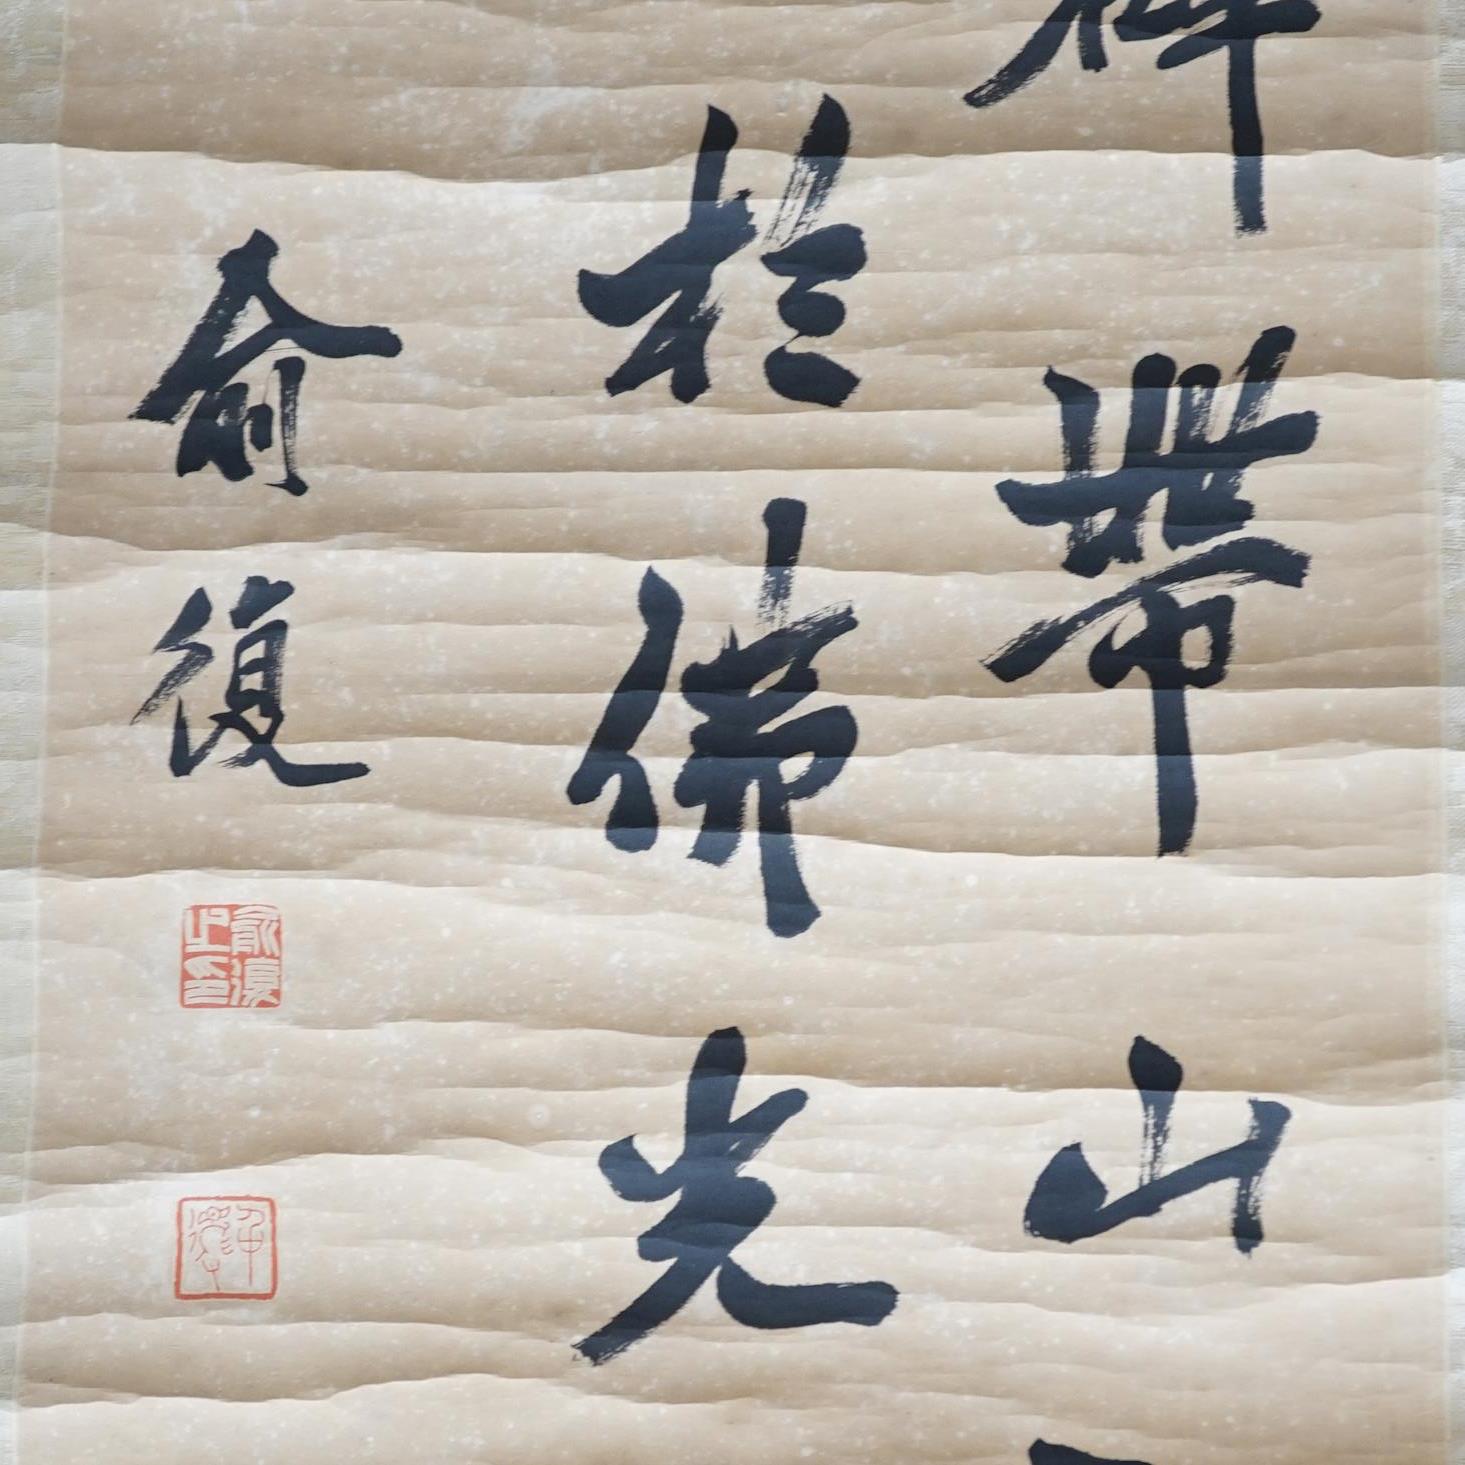 帶山
於佛光
俞復
俞復之印